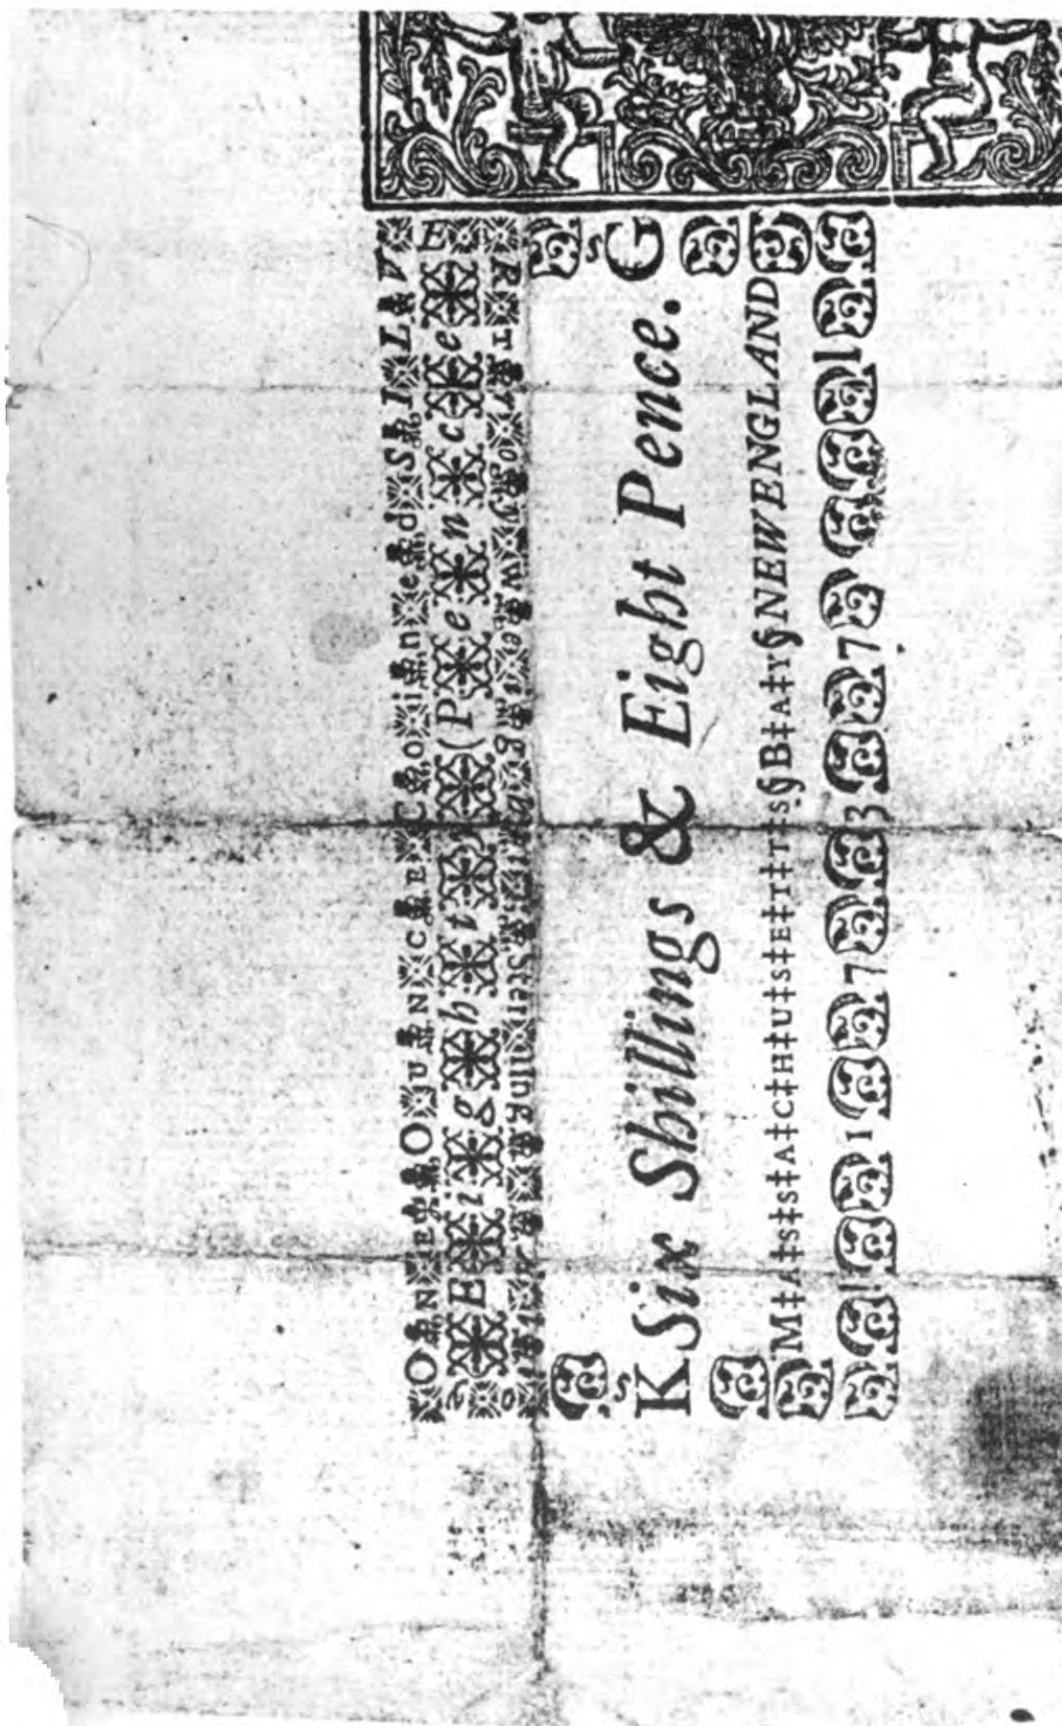 O N E O u N C E C o i n e d S I L V
a E i g h t ) ( P e n c e E
Sterling R
s s
K Six Shillings & Eight Pence. G
M‡A‡S‡S‡A‡C‡H‡U‡S‡E‡T‡T‡S§B‡A‡Y§NEWENGLAND
! 1 7 3 7 l